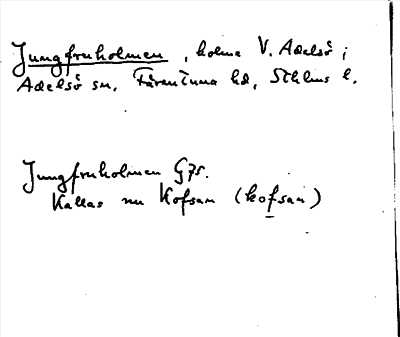 Jungfruholmen, holme V. Adelsö i
Adelsö sn, Färentuna hd, Sthlms l.
Jungfruholmen G75.
Kallas nu Kofsan (kofsan)